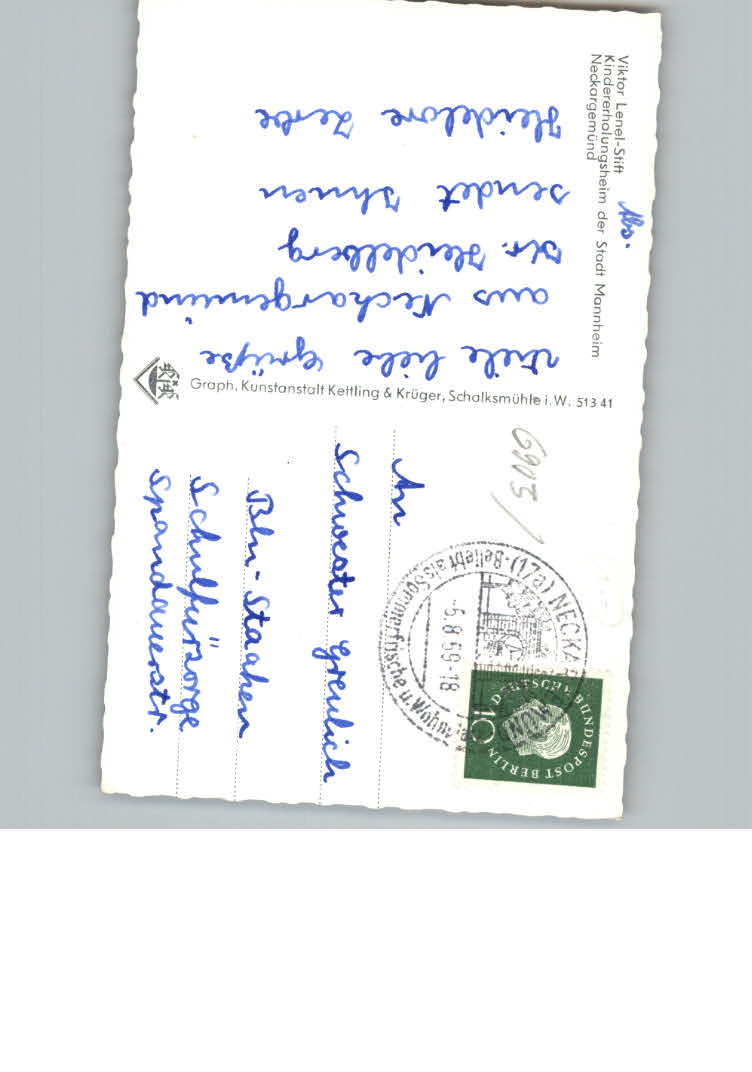 Viktor Lenel-Stift
Kindererholungsheim der Stadt Mannheim
Neckargemünd
Abs.
Viele liebe Grüße
aus Neckargemünd
b/r. Heidelberg
sendet Ihnen
Heidelore Zerbe
Graph. Kunstanstalt Kettling & Krüger, Schalksmühle i. W. 513 41
6903/
An
Schwester Greulich
Bln-Staaken
Schulfürsorge
Spandauerstr.
(17a) NECKAR
Beliebt als Sommerfrische u. Wohn
-6.8.59-18
DEUTSCHE BUNDESPOST BERLIN
10